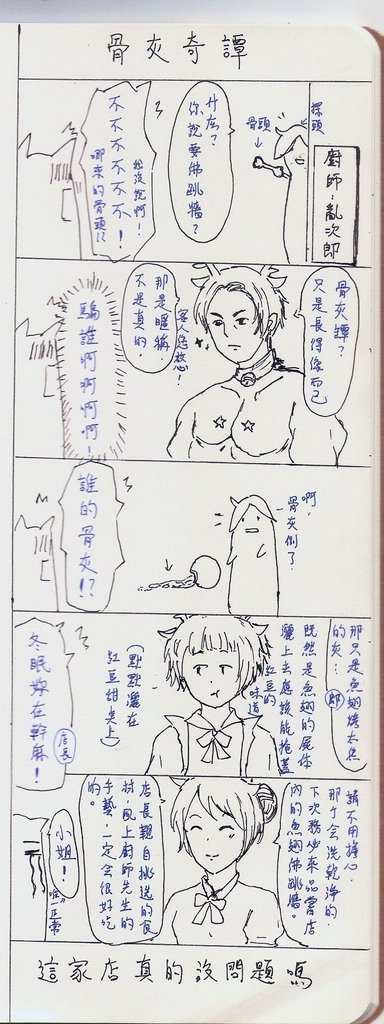 骨灰奇譚
探頭
骨頭
廚師：亂次郎
什麼？
你說要佛跳牆？
我沒說啊！
不不不不不不！
哪來的骨頭!?
骨灰譚？
只是長得像而已
客人您放心！
那是暱稱
不是真的！
騙誰啊啊啊啊！
啊,
骨灰倒了.
誰的骨灰!?
那只是魚翅烤太焦
的灰…
既然是魚翅的屍體
灑上去應該能掩蓋
紅豆的
味道
(點點灑在
紅豆甜奐上)
冬眠妳在幹麻！
店長
請不用擔心.
那子會洗乾淨的.
下次務必來品嘗店
內的魚翅佛跳牆。
店長親自挑選的食
材,配上廚師先生的
手藝,一定會很好吃
的。
小姐！
唯一正常
這家店真的沒問題嗎